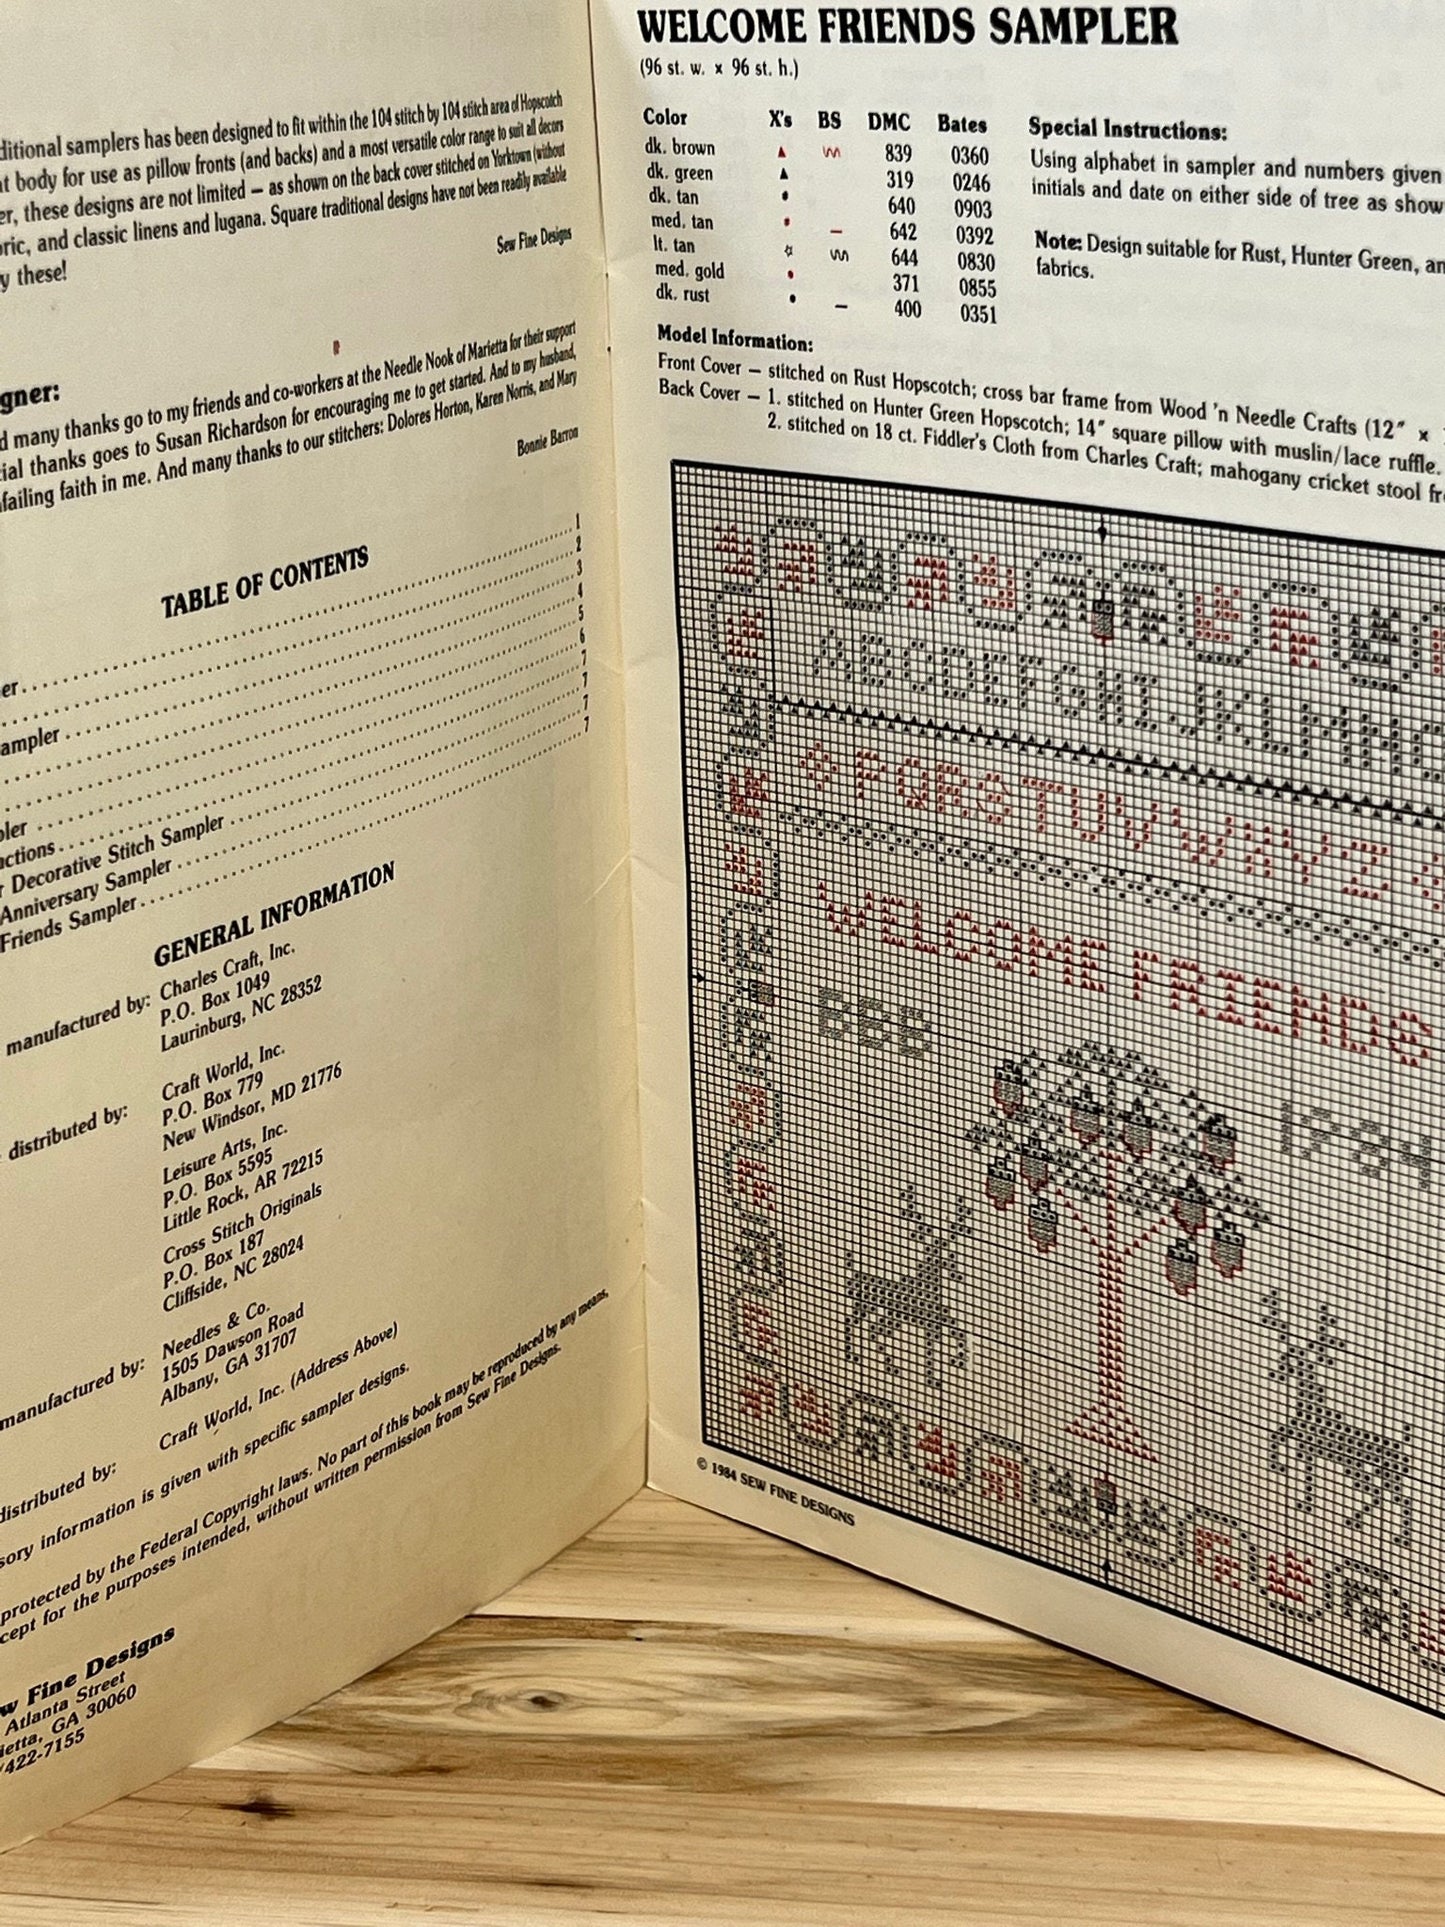 ditional samplers has been designed to fit within the 104 stitch by 104 stitch area of Hopscotch
t body for use as pillow fronts (and backs) and a most versatile color range to suit all decors
er, these designs are not limited — as shown on the back cover stitched on Yorktown (without
ric, and classic linens and lugana. Square traditional designs have not been readily available
y these!
Sew Fine Designs
gner:
d many thanks go to my friends and co-workers at the Needle Nook of Marietta for their support
ial thanks goes to Susan Richardson for encouraging me to get started. And to my husband,
failing faith in me. And many thanks to our stitchers: Dolores Horton, Karen Norris, and Mary
Bonnie Barron
TABLE OF CONTENTS
er 1
2
ampler 3
4
5
pler 6
uctions 7
r Decorative Stitch Sampler 7
Anniversary Sampler 7
Friends Sampler 7
GENERAL INFORMATION
manufactured by: Charles Craft, Inc.
P.O. Box 1049
Laurinburg, NC 28352
distributed by: Craft World, Inc.
P.O. Box 779
New Windsor, MD 21776
Leisure Arts, Inc.
P.O. Box 5595
Little Rock, AR 72215
Cross Stitch Originals
P.O. Box 187
Cliffside, NC 28024
manufactured by: Needles & Co.
1505 Dawson Road
Albany, GA 31707
distributed by: Craft World, Inc. (Address Above)
sory information is given with specific sampler designs.
protected by the Federal Copyright laws. No part of this book may be reproduced by any means,
cept for the purposes intended, without written permission from Sew Fine Designs.
w Fine Designs
Atlanta Street
ietta, GA 30060
/422-7155
WELCOME FRIENDS SAMPLER
(96 st. w. x 96 st. h.)
Color X's BS DMC Bates
dk. brown 839 0360
dk. green 319 0246
dk. tan 640 0903
med. tan 642 0392
lt. tan 644 0830
med. gold 371 0855
dk. rust 400 0351
Special Instructions:
Using alphabet in sampler and numbers given
initials and date on either side of tree as show
Note: Design suitable for Rust, Hunter Green, an
fabrics.
Model Information:
Front Cover — stitched on Rust Hopscotch; cross bar frame from Wood 'n Needle Crafts (12" x
Back Cover — 1. stitched on Hunter Green Hopscotch; 14" square pillow with muslin/lace ruffle.
2. stitched on 18 ct. Fiddler's Cloth from Charles Craft; mahogany cricket stool fr
ABCDEFGHIJKLMNO
PQRSTUVWXYZ
WELCOME FRIENDS
BBB
1984
© 1984 SEW FINE DESIGNS